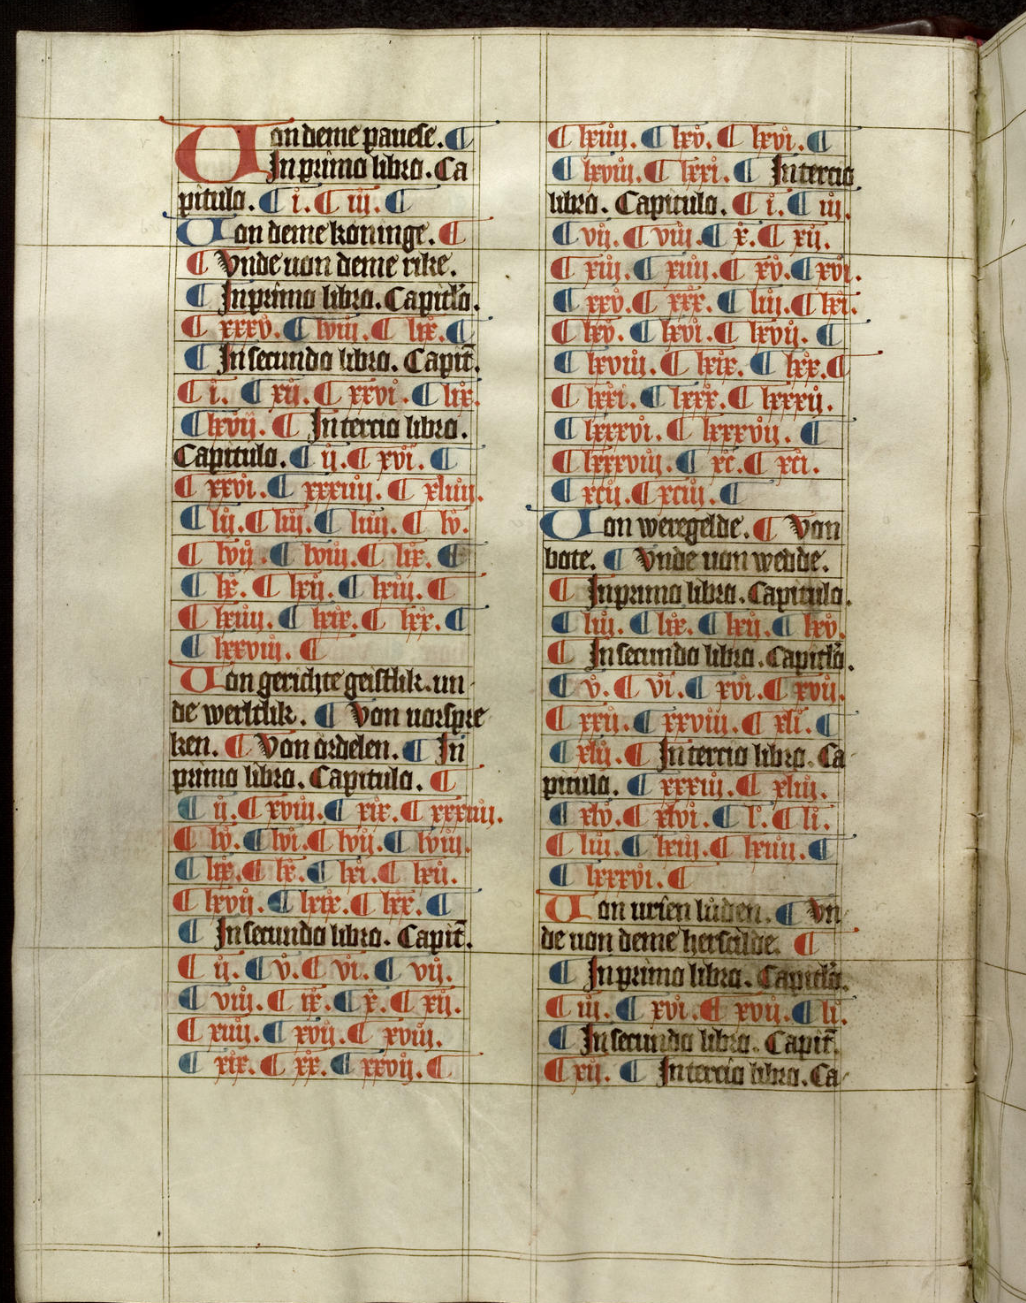 Uon deme pauese. ¶
In primo libro. Ca
pitulo. ¶ i. ¶ iij. ¶
Uon deme koninge. ¶
¶ Vnde uon deme rike.
¶ In primo libro. Capitlo.
¶ xxxv. ¶ lviij. ¶ lix. ¶
¶ In secundo libro. Capit.
¶ i. ¶ xij. ¶ xxvi. ¶ lix.
¶ lxvij. ¶ In tercio libro.
Capitulo. ¶ ij. ¶ xvi. ¶
¶ xxvi. ¶ xxxiiij. ¶ xliiij.
¶ lij. ¶ liij. ¶ liiij. ¶ lv.
¶ lvij. ¶ lviij. ¶ lix. ¶
¶ lx. ¶ lxij. ¶ lxiij. ¶
¶ lxiiij. ¶ lxix. ¶ lxx. ¶
¶ lxxviij. ¶
Uon gerichte geistlik. un
de werltlik. ¶ Von uorspre
ken. ¶ Von ordelen. ¶ In
primo libro. Capitulo. ¶
¶ ij. ¶ xviij. ¶ xix. ¶ xxxiiij.
¶ lv. ¶ lvi. ¶ lvij. ¶ lviij.
¶ lix. ¶ lx. ¶ lxi. ¶ lxij.
¶ lxvij. ¶ lxix. ¶ lxx. ¶
¶ In secundo libro. Capit.
¶ ij. ¶ v. ¶ vi. ¶ vij.
¶ viij. ¶ ix. ¶ x. ¶ xij.
¶ xiiij. ¶ xvij. ¶ xviij.
¶ xix. ¶ xx. ¶ xxvij. ¶
¶ lxiiij. ¶ lxv. ¶ lxvi. ¶
¶ lxviij. ¶ lxxi. ¶ In tercio
libro. Capitulo. ¶ i. ¶ iij.
¶ vij. ¶ viij. ¶ x. ¶ xij.
¶ xiij. ¶ xiiij. ¶ xv. ¶ xvi.
¶ xxv. ¶ xxx. ¶ liij. ¶ lxi.
¶ lxv. ¶ lxvi. ¶ lxvij. ¶
¶ lxviij. ¶ lxix. ¶ lxx. ¶
¶ lxxi. ¶ lxxx. ¶ lxxxij.
¶ lxxxvi. ¶ lxxxvij. ¶
¶ lxxxviij. ¶ xc. ¶ xci.
¶ xcij. ¶ xciij. ¶
Uon weregelde. ¶ Von
bote. ¶ Vnde uon wedde.
¶ In primo libro. Capitulo.
¶ liij. ¶ lix. ¶ lxij. ¶ lxv.
¶ In secundo libro. Capitlo.
¶ v. ¶ vi. ¶ xvi. ¶ xvij.
¶ xxij. ¶ xxviij. ¶ xli. ¶
¶ xlij. ¶ In tercio libro. Ca
pitulo. ¶ xxxiij. ¶ xliij.
¶ xlv. ¶ xlvi. ¶ l. ¶ li.
¶ liij. ¶ lxiij. ¶ lxiiij. ¶
¶ lxxxvi. ¶
Uon urien luden. ¶ Vn
de uon deme herscilde. ¶
¶ In primo libro. Capitlo.
¶ iij. ¶ xvi. ¶ xvij. ¶ li.
¶ In secundo libro. Capit.
¶ xij. ¶ In tercio libro. Ca